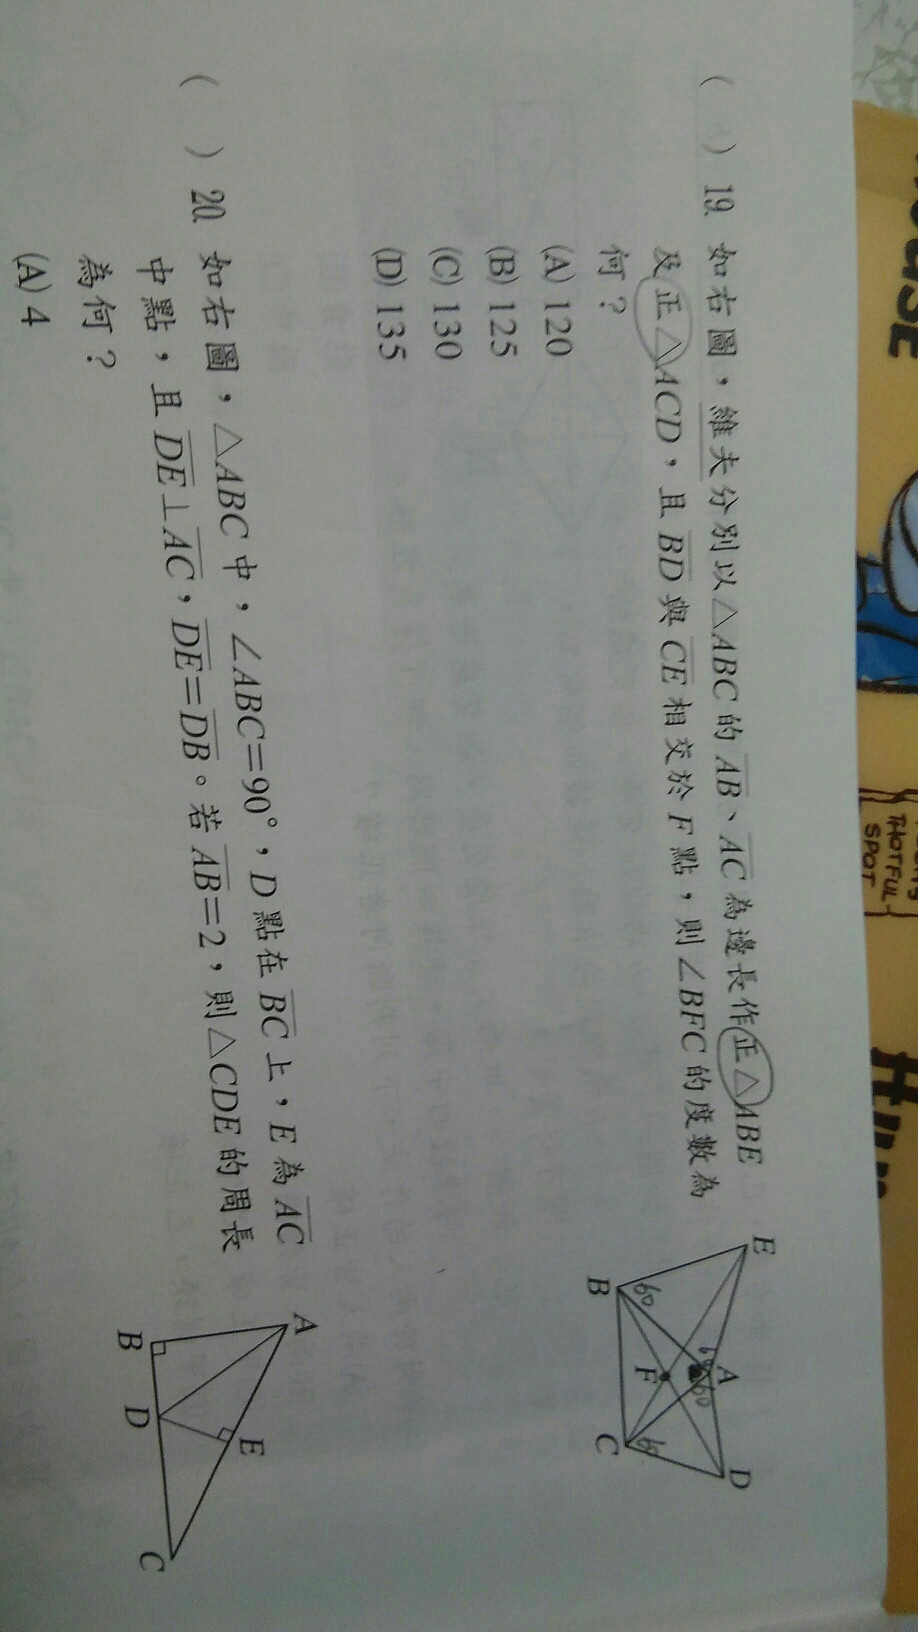 ( ) 19. 如右圖，維夫分別以△ABC的AB、AC為邊長作正△ABE
及正△ACD，且BD與CE相交於F點，則∠BFC的度數為
何？
(A) 120
(B) 125
(C) 130
(D) 135
E
A
D
B
F
C
60
60
60
( ) 20. 如右圖，△ABC中，∠ABC=90°，D點在BC上，E為AC
中點，且DE⊥AC，DE=DB。若AB=2，則△CDE的周長
為何？
(A) 4
A
E
B
D
C
THOTFUL
SPOT